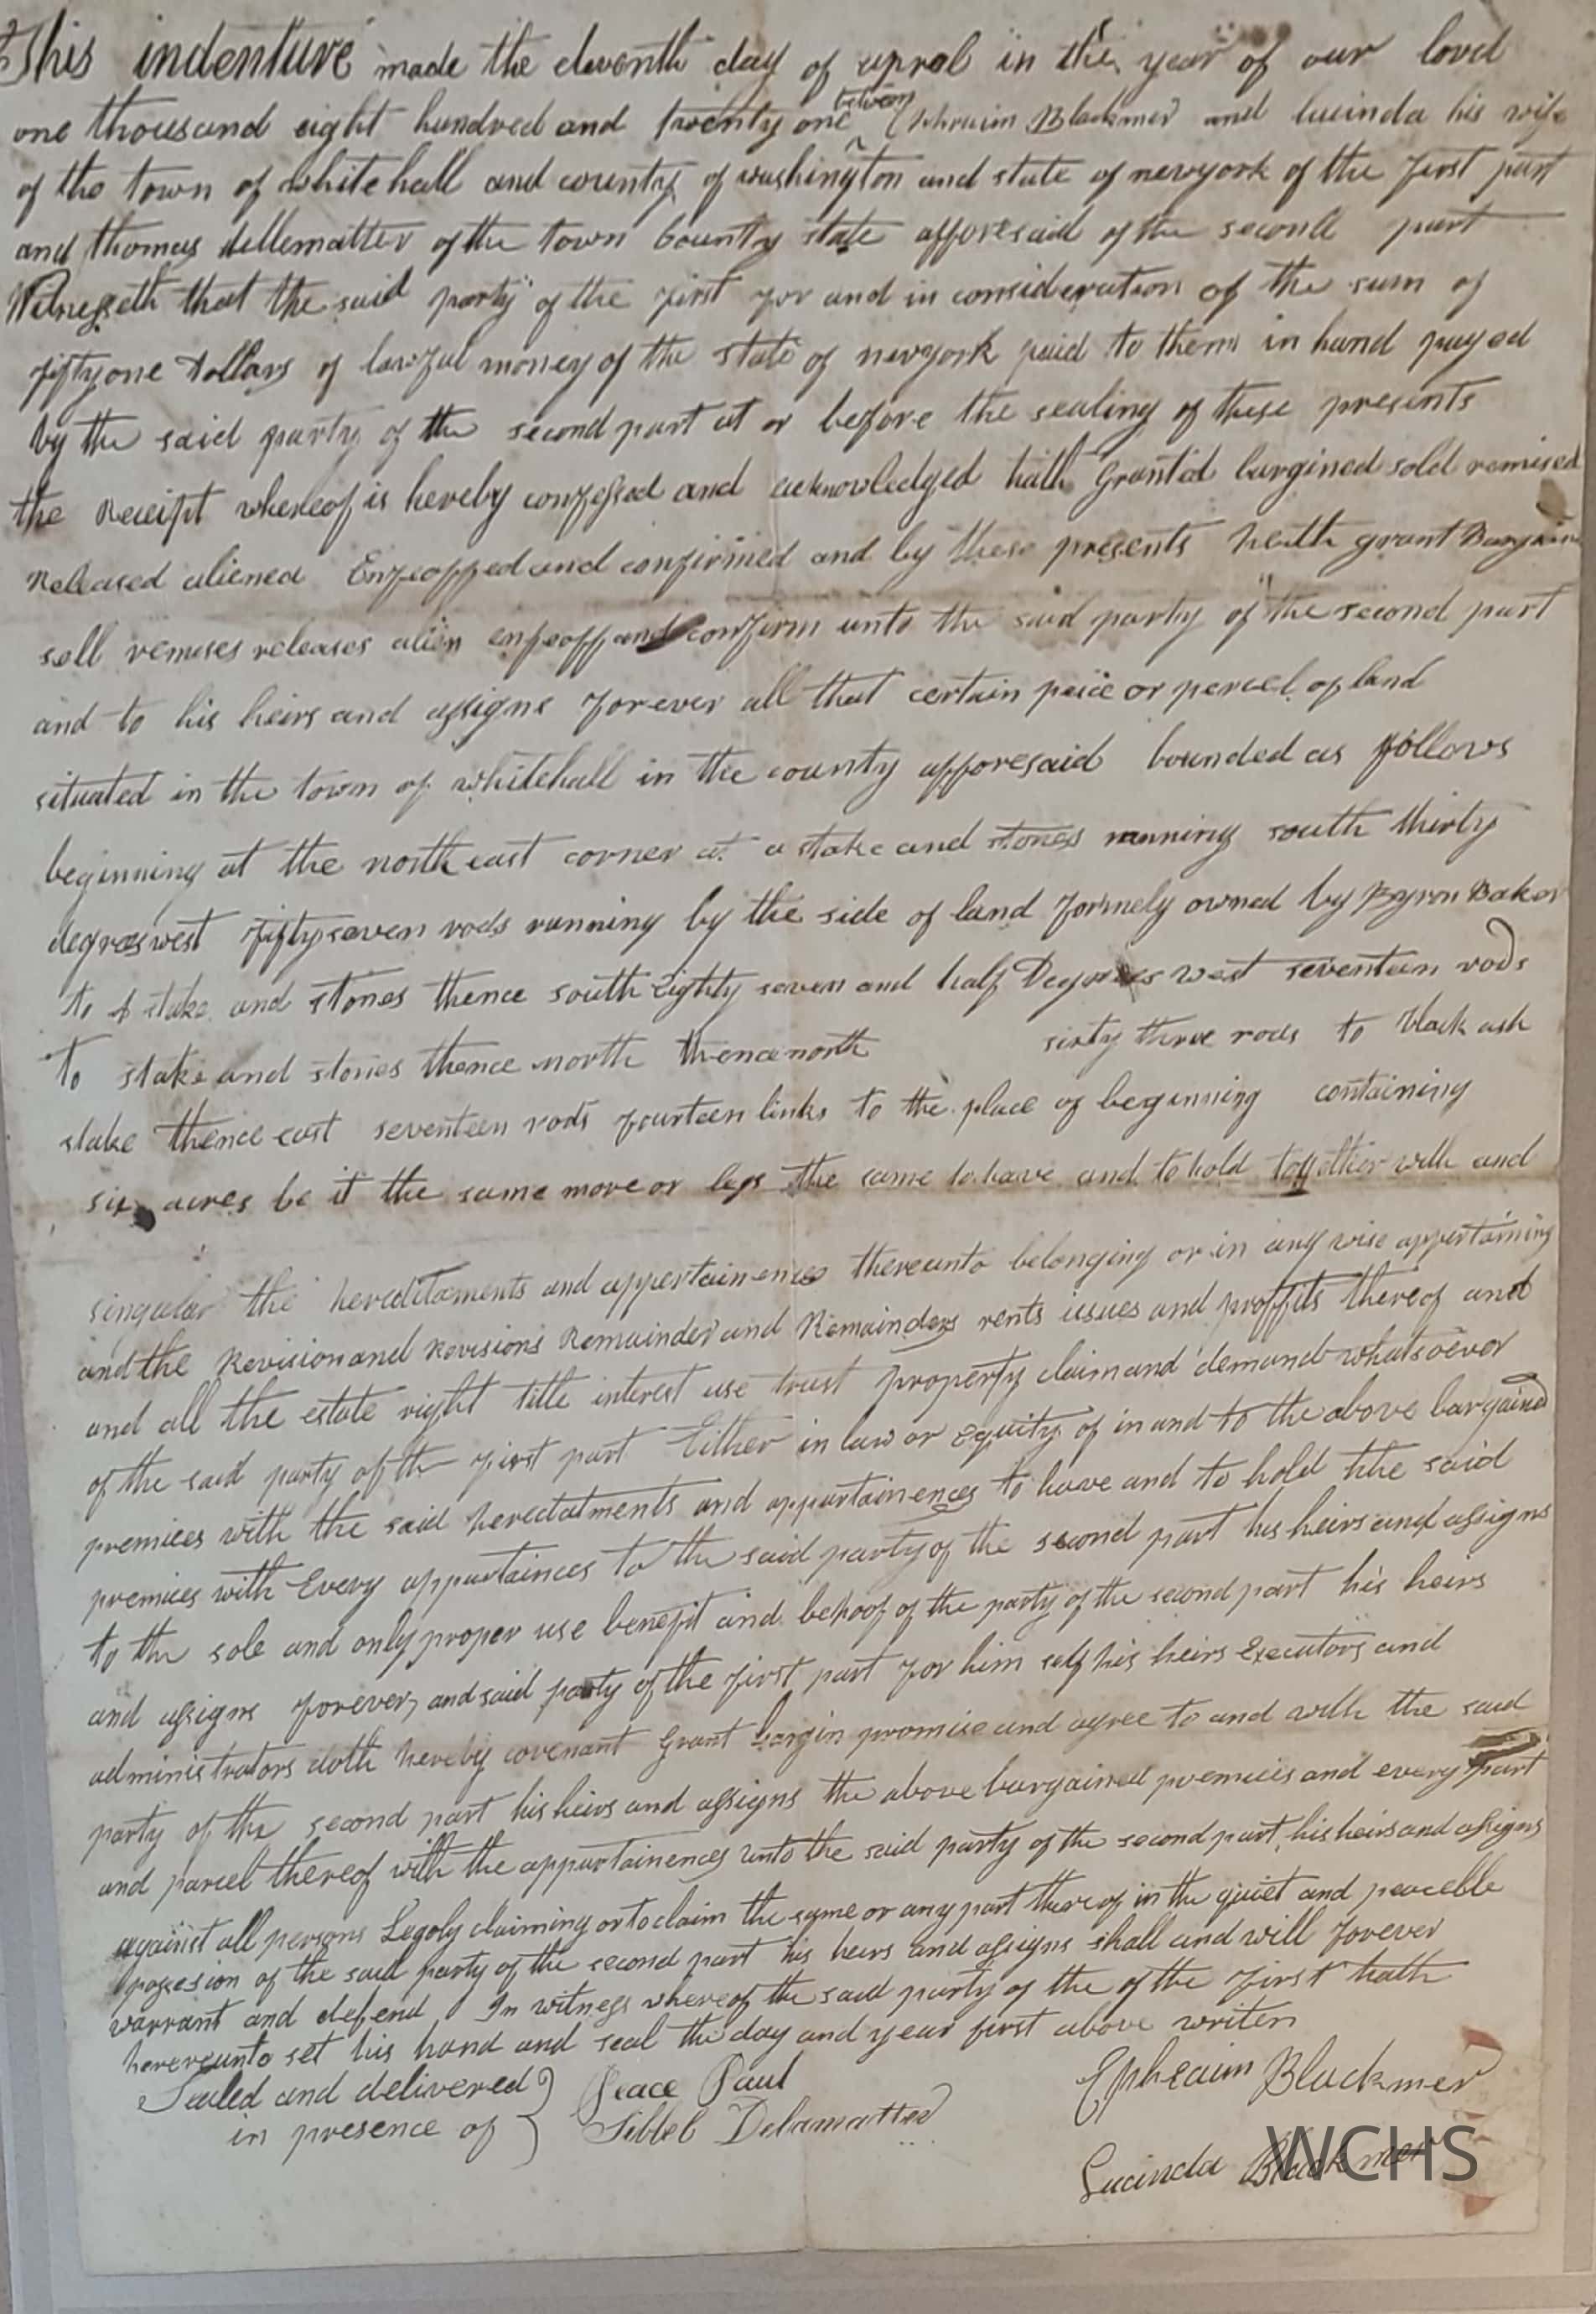 This indenture made the eleventh day of aprol in the year of our lord
one thousand eight hundred and twenty one between Ephraim Blackmer and lucinda his wife
of the town of whitehall and county of washington and state of newyork of the first part
and thomas dellematter of the town County state afforesaid of the second part
Witnesseth that the said party of the first for and in consideration of the sum of
fiftyone Dollars of lawful money of the state of newyork paid to them in hand payed
by the said party of the second part at or before the sealing of these presents
the Receipt whereof is hereby confessed and acknowledged hath Grantid bargined sold remised
Released aliened Enfeoffed and confirmed and by these presents heath grant Bargain
sell remises releases alien enfeoff and confirm unto the said party of the second part
and to his heirs and assigns forever all that certain peice or percel of land
situated in the town of whitehall in the county afforesaid bounded as follows
beginning at the north east corner at a stake and stones running south thirty
degrees west fiftyseven rods running by the side of land formely owned by Byron Baker
to A stake and stones thence south Eighty seven and half Degrees west seventeen rods
To stake and stones thence north thence north sixty three rods to black ash
stake thence east seventeen rods fourteen links to the place of beginning containing
six acres be it the same more or less the same to have and to hold together with and
singular the hereditaments and appertainences thereunto belonging or in any wise appertaining
and the Revision and Revisions Remainder and Remainders rents issues and proffits thereof and
and all the estate right title interest use trust property claim and demand whatsoever
of the said party of the first part Either in law or Equity of in and to the above bargained
premices with the said heredatments and appurtainences to have and to hold the said
premices with Every appurtainces to the said party of the second part his heirs and assigns
to the sole and only proper use benefit and behoof of the party of the second part his heirs
and assigns forever, and said party of the first part for him self his heirs Executors and
administrators doth hereby covenant Grant bargin promise and agree to and with the said
party of the second part his heirs and assigns the above bargained premices and every part
and parcel thereof with the appurtainences unto the said party of the second part, his heirs and assigns
against all persons Legoly claiming or to claim the same or any part thereof in the quiet and peaceble
possesion of the said party of the second part his heirs and assigns shall and will forever
warrant and defend In witness whereof the said party of the of the first hath
hereunto set his hand and seal the day and year first above writen
Sealed and delivered Peace Paul Ephraim Blackmer
in presence of Sibbel Delamatter
Lucinda Blackmer
WCHS